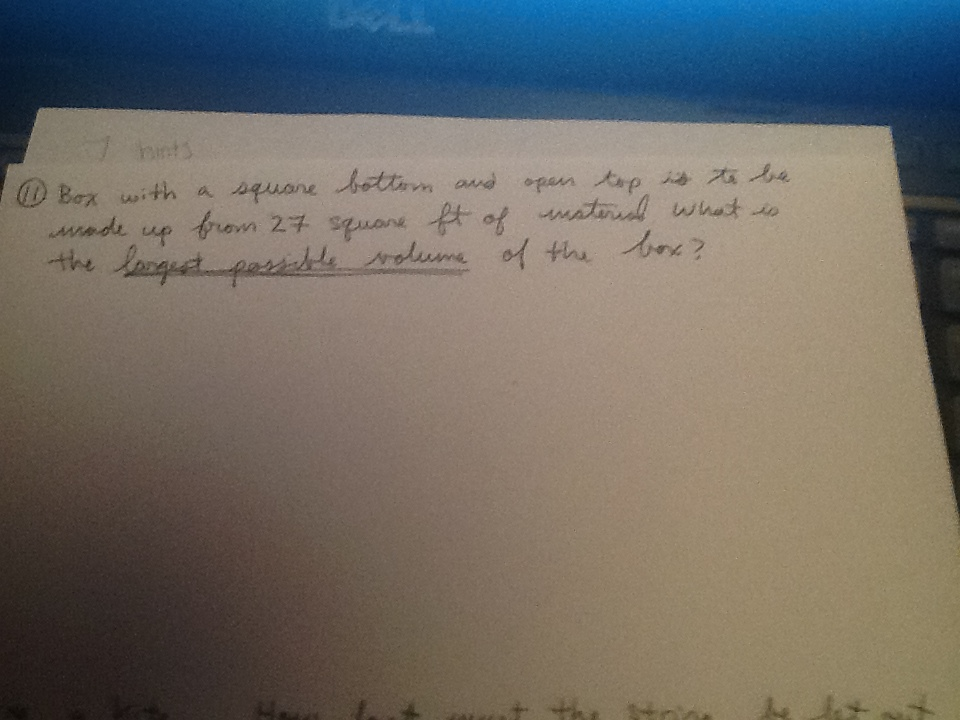 DELL
7 hints
11 Box with a square bottom and open top is to be
made up from 27 square ft of material What is
the largest possible volume of the box?
must the string be let out